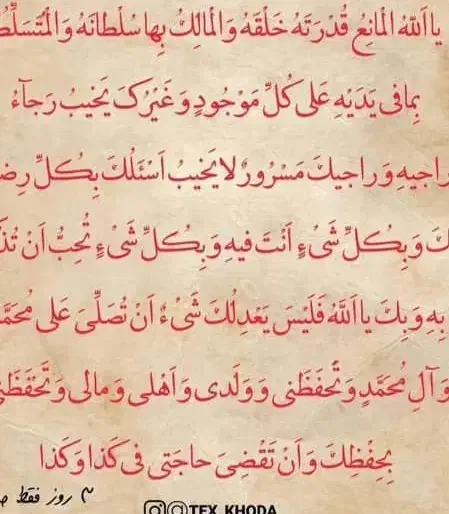 يااَللّٰهُ الْمانِعُ قُدْرَتَهُ خَلْقَهُ وَالْمالِكُ بِها سُلْطانَهُ وَالْمُتَسَلِّطُ
بِمافی يَدَيْهِ عَلی کُلِّ مَوْجُودٍ وَغَيْرُکَ يَخيبُ رَجآءُ
راجيهِ وَراجيکَ مَسْرُورٌ لايَخيبُ اَسْئَلُکَ بِکُلِّ رِضی
لَکَ وَبِکُلِّ شَیْءٍ اَنْتَ فيهِ وَبِکُلِّ شَیْءٍ تُحِبُّ اَنْ تُذْ
بِهِ وَبِکَ يااَللّٰهُ فَلَيْسَ يَعْدِلُکَ شَیْءٌ اَنْ تُصَلِّیَ عَلی مُحَمَّ
وَآلِ مُحَمَّدٍ وَتَحْفَظَنی وَوَلَدی وَاَهْلی وَمالی وَتَحْفَظَنی
بِحِفْظِکَ وَاَنْ تَقْضِیَ حاجَتی فی کَذا وَکَذا
۳ روز فقط
@TEX_KHODA